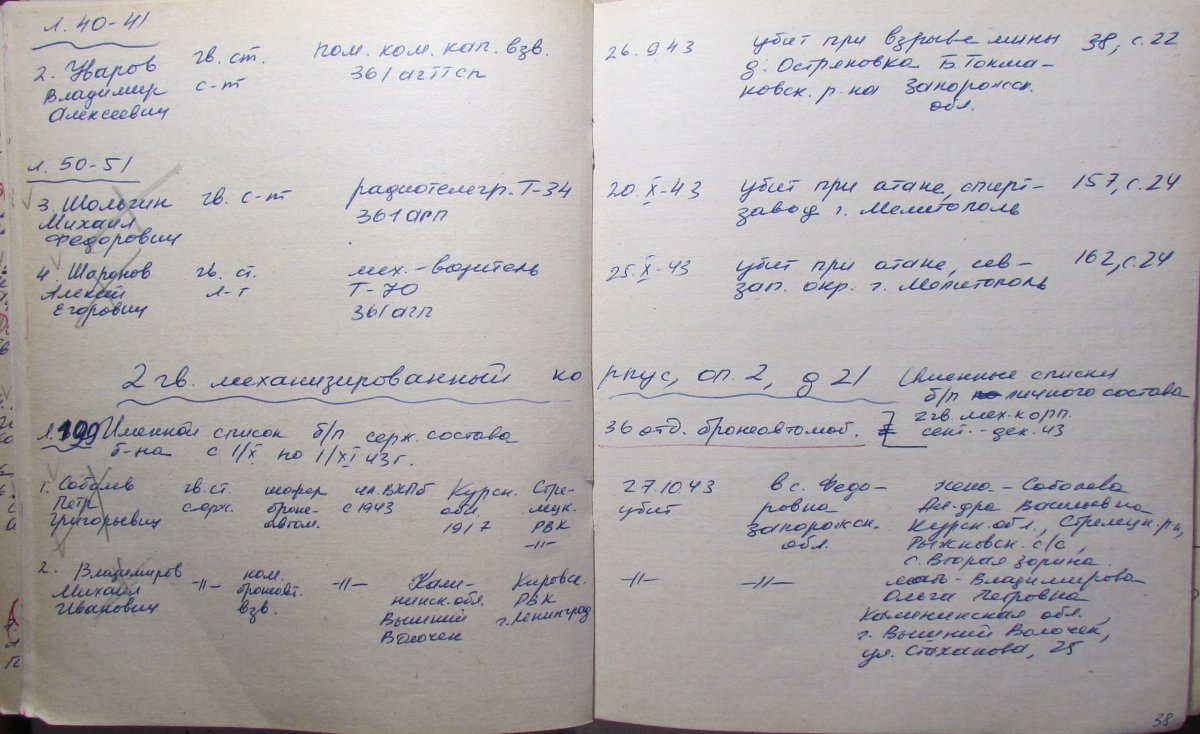 л. 40-41
2. Уваров гв. ст. пом. ком. кап. взв. 26.9.43 убит при взрыве мины 38, с.22
Владимир с-т 361 агТТсп д. Остриковка Б.Токма-
Алексеевич ковск. р-на Запорожск.
обл.
л. 50-51
3. Шологин гв. с-т радиотелегр. Т-34 20.X-43 убит при атаке, спирт- 157, с.24
Михаил 361 арп завод г. Мелитополь
Федорович
4. Шаронов гв. ст. мех.-водитель 25.X-43 убит при атаке, сев- 162, с.24
Алексей л-т Т-70 зап. окр. г. Мелитополь
Егорович 361 агп
2 гв. механизированный корпус, оп. 2, д 21 Именные списки
б/п личного состава
2 гв. мех. корп.
сент.-дек. 43
л. 199 Именной список б/п серж. состава 36 отд. бронеавтомоб.
б-на с 1/X по 1/XI 43 г.
1. Соболев гв. ст. шофер чл. ВКПб Курск. Стре- 27.10.43 в с. Федо- жена - Соболева
Петр серж. броне- с 1943 обл. лецк. убит ровка Ал-дра Васильевна
Григорьевич автом. 1917 РВК Запорожск. Курск. обл., Стрелецк. р-н,
-"- обл. Рыжковск. с/с,
с. Вторая Зорина
2. Владимиров -"- ком. -"- Кали- Кировск. -"- -"- мать - Владимирова
Михаил бронеавт. нинск. обл. РВК Ольга Петровна
Иванович взв. Вышний г. Ленинград Калининская обл.,
Волочек г. Вышний Волочек,
ул. Стаханова, 25
38